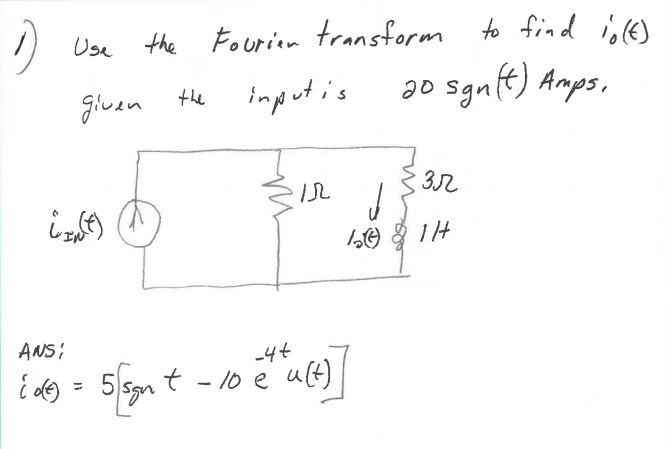 1) Use the Fourier transform to find i₀(t)
given the input is 20 sgn(t) Amps.
1Ω
3Ω
i_IN(t)
i₀(t)
1H
ANS:
i₀(t) = 5[sgn t - 10 e^-4t u(t)]